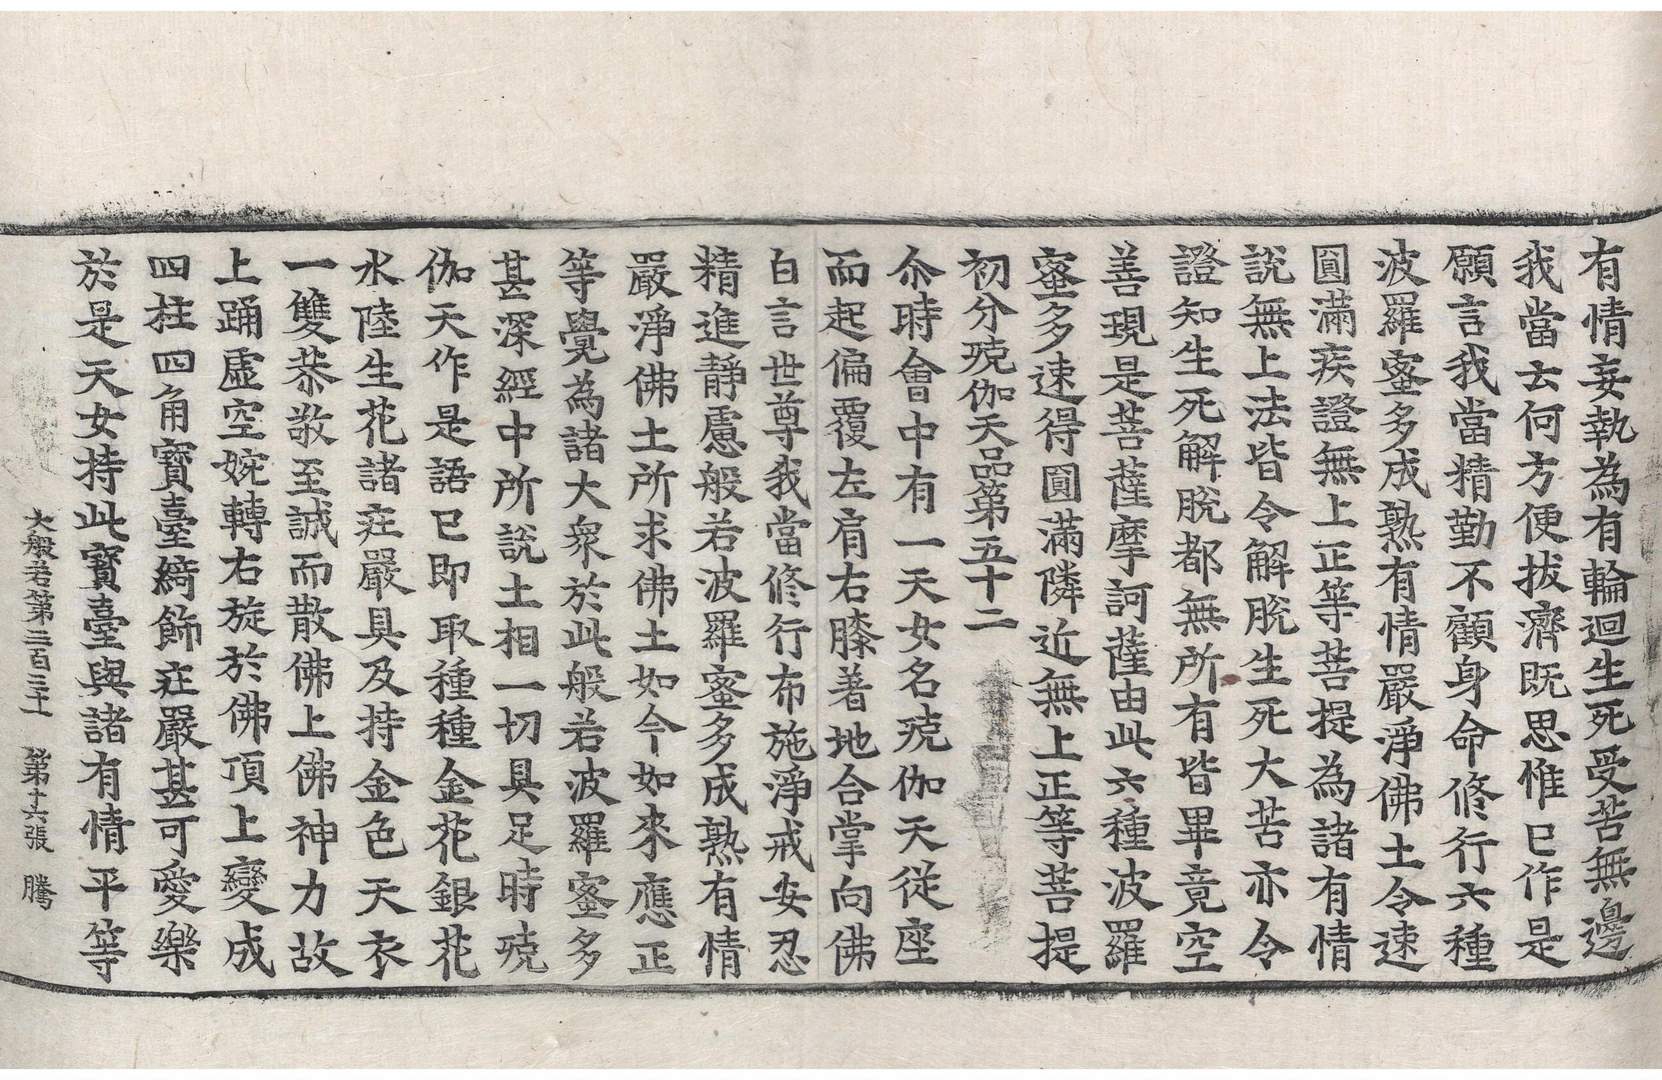 有情妄執為有輪迴生死受苦無邊
我當云何方便拔濟既思惟已作是
願言我當精勤不顧身命修行六種
波羅蜜多成熟有情嚴淨佛土令速
圓滿疾證無上正等菩提為諸有情
說無上法皆令解脫生死大苦亦令
證知生死解脫都無所有皆畢竟空
善現是菩薩摩訶薩由此六種波羅
蜜多速得圓滿隣近無上正等菩提
初分殑伽天品第五十二
尒時會中有一天女名殑伽天從座
而起偏覆左肩右膝著地合掌向佛
白言世尊我當修行布施淨戒安忍
精進靜慮般若波羅蜜多成熟有情
嚴淨佛土所求佛土如今如來應正
等覺為諸大衆於此般若波羅蜜多
甚深經中所說土相一切具足時殑
伽天作是語已即取種種金花銀花
水陸生花諸莊嚴具及持金色天衣
一雙恭敬至誠而散佛上佛神力故
上踊虛空婉轉右旋於佛頂上變成
四柱四角寶臺綺飾莊嚴甚可愛樂
於是天女持此寶臺與諸有情平等
大般若第三百三十 第十六張 騰